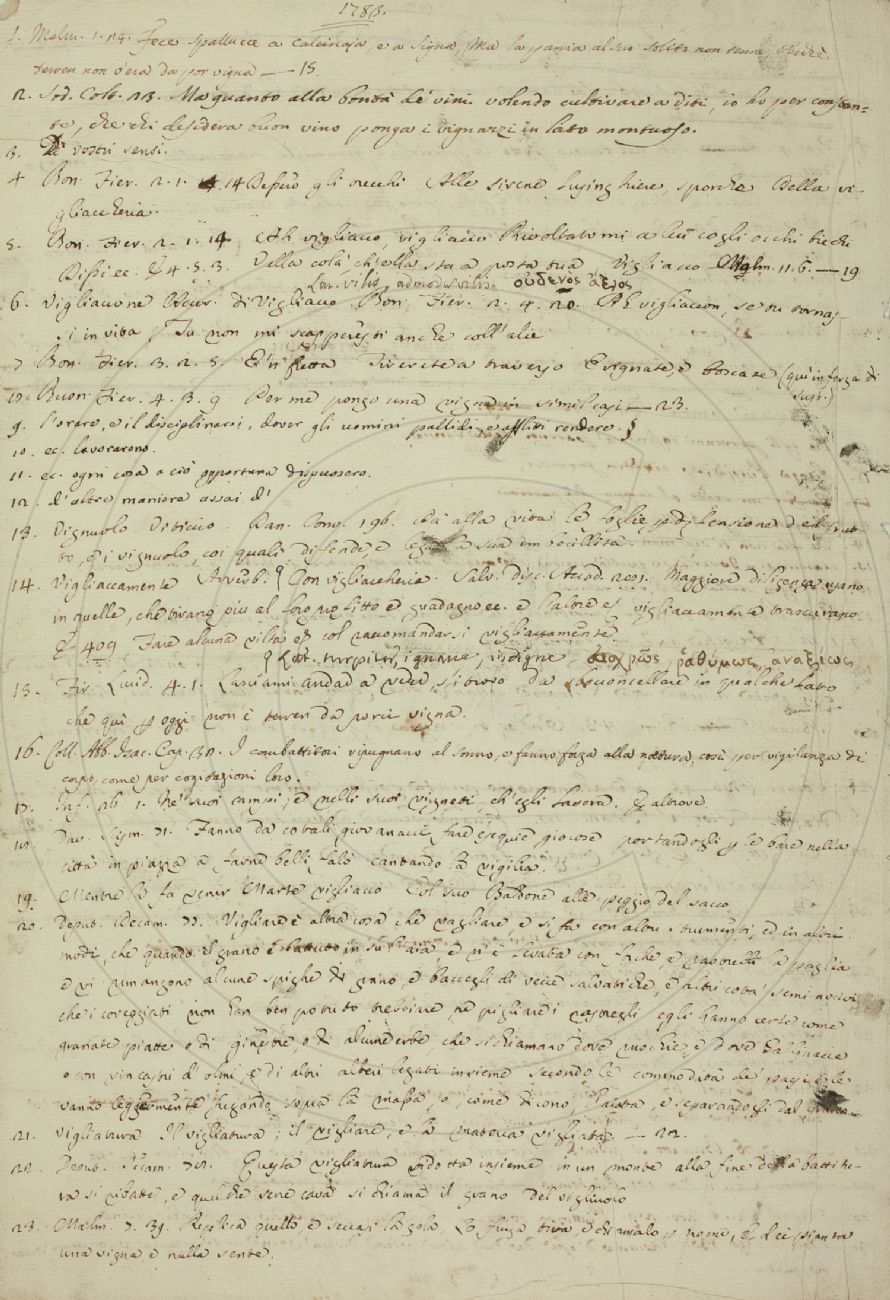 1788.
1. Malm. 1. 74. Fece spallucce a Calcinaja, e a Signa, Ma la pania al suo solito non tenne,
terren non v'era da por vigna — 15.
2. Sod. Colt. 23. Ma quanto alla bontà de' vini volendo cultivare a viti, io ho per constan=
te, che chi desidera buon vino ponga i vignazzi in lato montuoso.
3. De' vostri sensi.
4 Bon. Fier. 2. 1. 14 gli orecchi Alle sirene lusinghiere, sporche Della vi-
gliaccheria.
5. Bon. Fier. 2. 1. 14 Ah vigliacco, vigliacco Rivoltatomi a lui cogli occhi biechi
Dissi ec. E 4. 5. 3. Vella colà, ch'ella sta a posta tua Vigliacco Malm. 11. 6. — 19
Lat. vilis, admodum vilis. οὐδενὸς ἄξιος
6. Vigliaccone Accr. di Vigliacco Bon. Fier. 2. 4. 20. Ah vigliaccon, se tu tornas-
si in vita, Tu non mi scapperesti anche coll' alie
7 Bon. Fier. 3. 2. 5. E 'n fretta a traverso E vignate, e boscate (qui in forza di
Sust.)
Buon. Fier. 4. 3. 9 Per me pongo una vigna in simil casi — 23.
9. l'orare, e il disciplinarsi, dover gli uomini pallidi e afflitti rendere.
10. ec. lavorarono.
11. ec. ogni cosa a ciò opportuna disposero.
12. d'altre maniere assai d'
13. Vignuolo. Viticcio. Dan. Conv. 196. Dà alla vite le foglie per difensione del frut-
to, e i vignuoli, coi quali difende, e lega la sua imbecillità.
14. Vigliaccamente Avverb. Con vigliaccheria. Salv. disc. Maggiore diligenza usano
in quelle, che tirano più al loro profitto e guadagno ec. e l'altre vigliaccamente trascurano.
E 409 Fare alcuna viltà col raccomandarsi vigliaccamente
Lat. turpiter, ignave, indigne αἰσχρῶς, ῥαθύμως, ἀναξίως
15. Fir. Lucid. 4. 1. Lasciami andar a veder, s'i' trovo da sbuoncellare in qualche lato
che qui per oggi non è terren da porci vigna.
16. Coll. Abb. Isac. Cap. 32. I combattitori ripugnano al sonno, e fanno forza alla natura, così per vigilanza di
corpo, come per cogitazioni loro.
17. 1. Ne' suoi campi, e nelli suoi vigneti, ch'egli lavora. E altrove.
Dav. Scism. 71. Fanno da cotali giovanacci fare esequie giocose portandogli per le bare nella
città in piazza a farne belli falò cantando la vigilia.
19. Mentre la fa venir Marte vigliacco Col suo Barbone alle peggio del sacco
20. Deput. Decam. 77. Vigliare è altra cosa che vagliare, e si fa con altri strumenti, ed in altri
modi, che quando il grano è battuto in su l'aia, e n'è levata con forche, e rastrelli la paglia
e vi rimangono alcune spighe di grano, e baccegli di vecce salvatiche, e altri cotai semi nocivi
che i coreggiati non han ben potuto trebbiare, nè pigliare i rastregli egli hanno certe come
granate piatte o di ginestre, o di alcune erbe, che si chiamano dove
o con vincastri d'olmi, e di altri alberi legati insieme secondo le commodità de' paesi e le
vanno leggermente fregando sopra la massa, o, come dicono, l'aiata, e separandogli dal
21. Vigliatura Il vigliatura; il vigliare, e la materia vigliata. — 22.
22. Deput. Decam. 78. Questa vigliatura ridotta insieme in un monte alla fine della battitu-
ra si ribatte, e quel che sene cava si chiama il grano del vigliuolo
23. Malm. 7. 39. Replica quello, e seccasi la gola, Lo fruga tira, e chiamalo per nome, E dei pianta
una vigna e nulla sente.